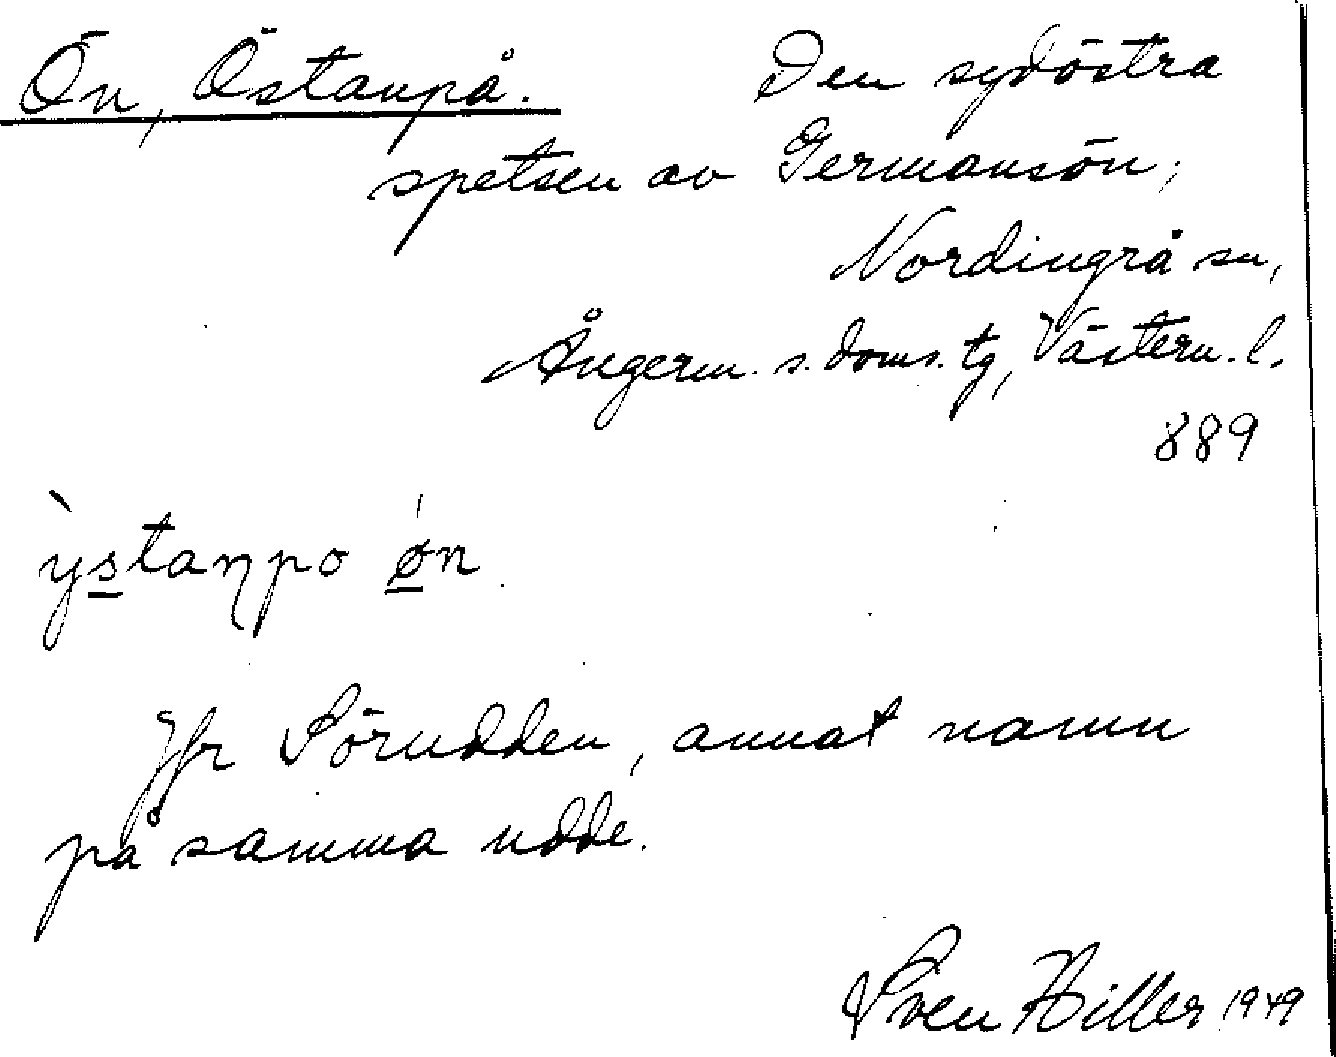 Ön, Östanpå. Den sydöstra
spetsen av Germansön,
Nordingrå sn,
Ångerm. s. doms. tg, Västern. l.
889
ỳstaŋpo øn
Jfr Sörudden, annat namn
på samma udde.
Sven Hiller 1949